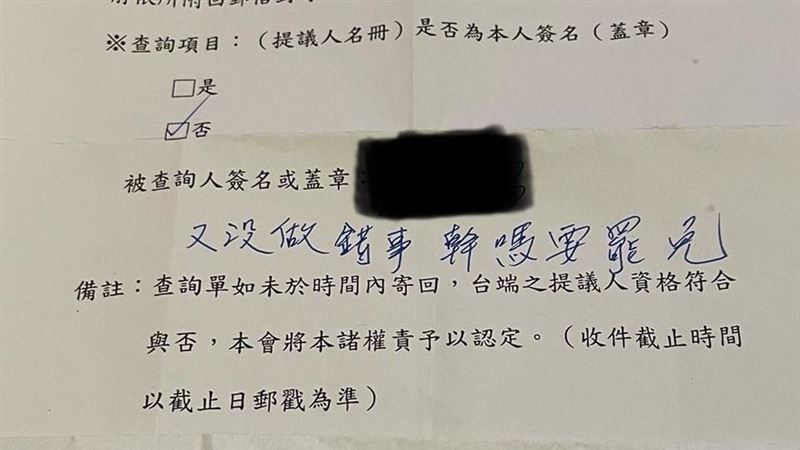 依所附回郵信封
※查詢項目：（提議人名冊）是否為本人簽名（蓋章）
□是
☑否
被查詢人簽名或蓋章：
又沒做錯事 幹嗎要罷免
備註：查詢單如未於時間內寄回，台端之提議人資格符合
與否，本會將本諸權責予以認定。（收件截止時間
以截止日郵戳為準）